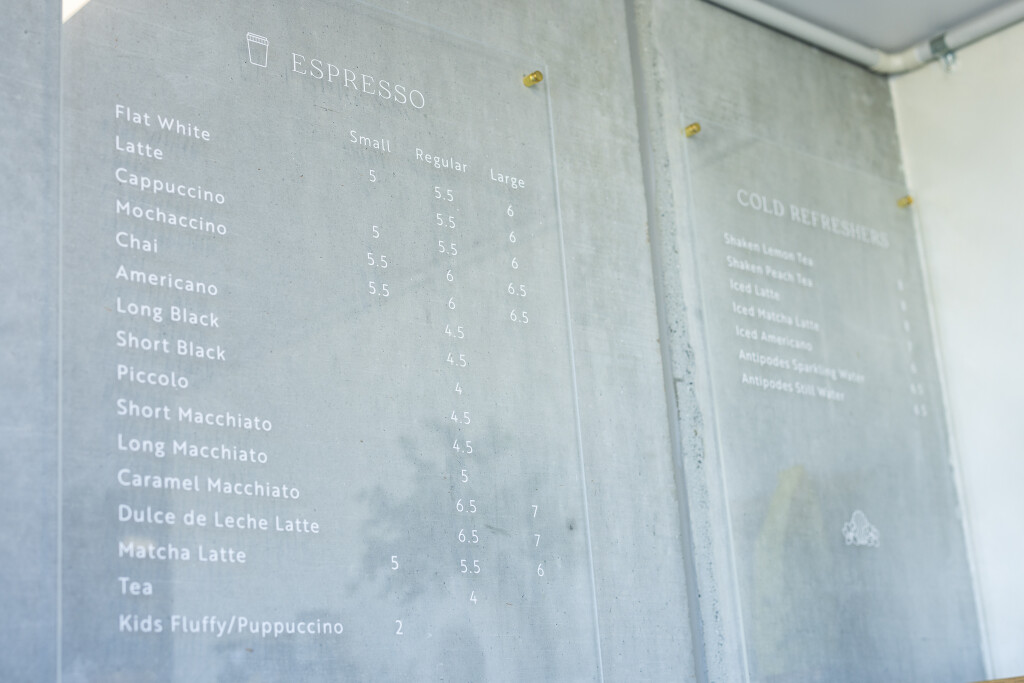 ESPRESSO
Small Regular Large
Flat White 5 5.5 6
Latte 5.5 6
Cappuccino 5 5.5 6
Mochaccino 5.5 6 6.5
Chai 5.5 6 6.5
Americano 4.5
Long Black 4.5
Short Black 4
Piccolo 4.5
Short Macchiato 4.5
Long Macchiato 5
Caramel Macchiato 6.5 7
Dulce de Leche Latte 6.5 7
Matcha Latte 5 5.5 6
Tea 4
Kids Fluffy/Puppuccino 2
COLD REFRESHERS
Shaken Lemon Tea
Shaken Peach Tea
Iced Latte
Iced Matcha Latte
Iced Americano
Antipodes Sparkling Water
Antipodes Still Water